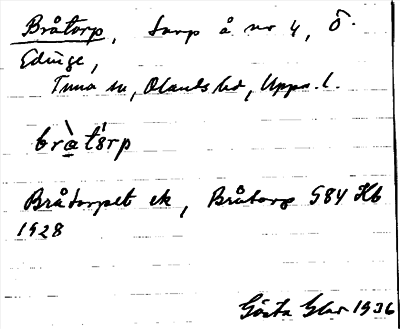 Bråtorp, torp å nr 4, Ö.
Edinge,
Tuna sn, Olands hd, Upps. l.
bràt§rp
Bråtorpet ek, Bråtorp S84 Hb
1928
Gösta Glar 1936